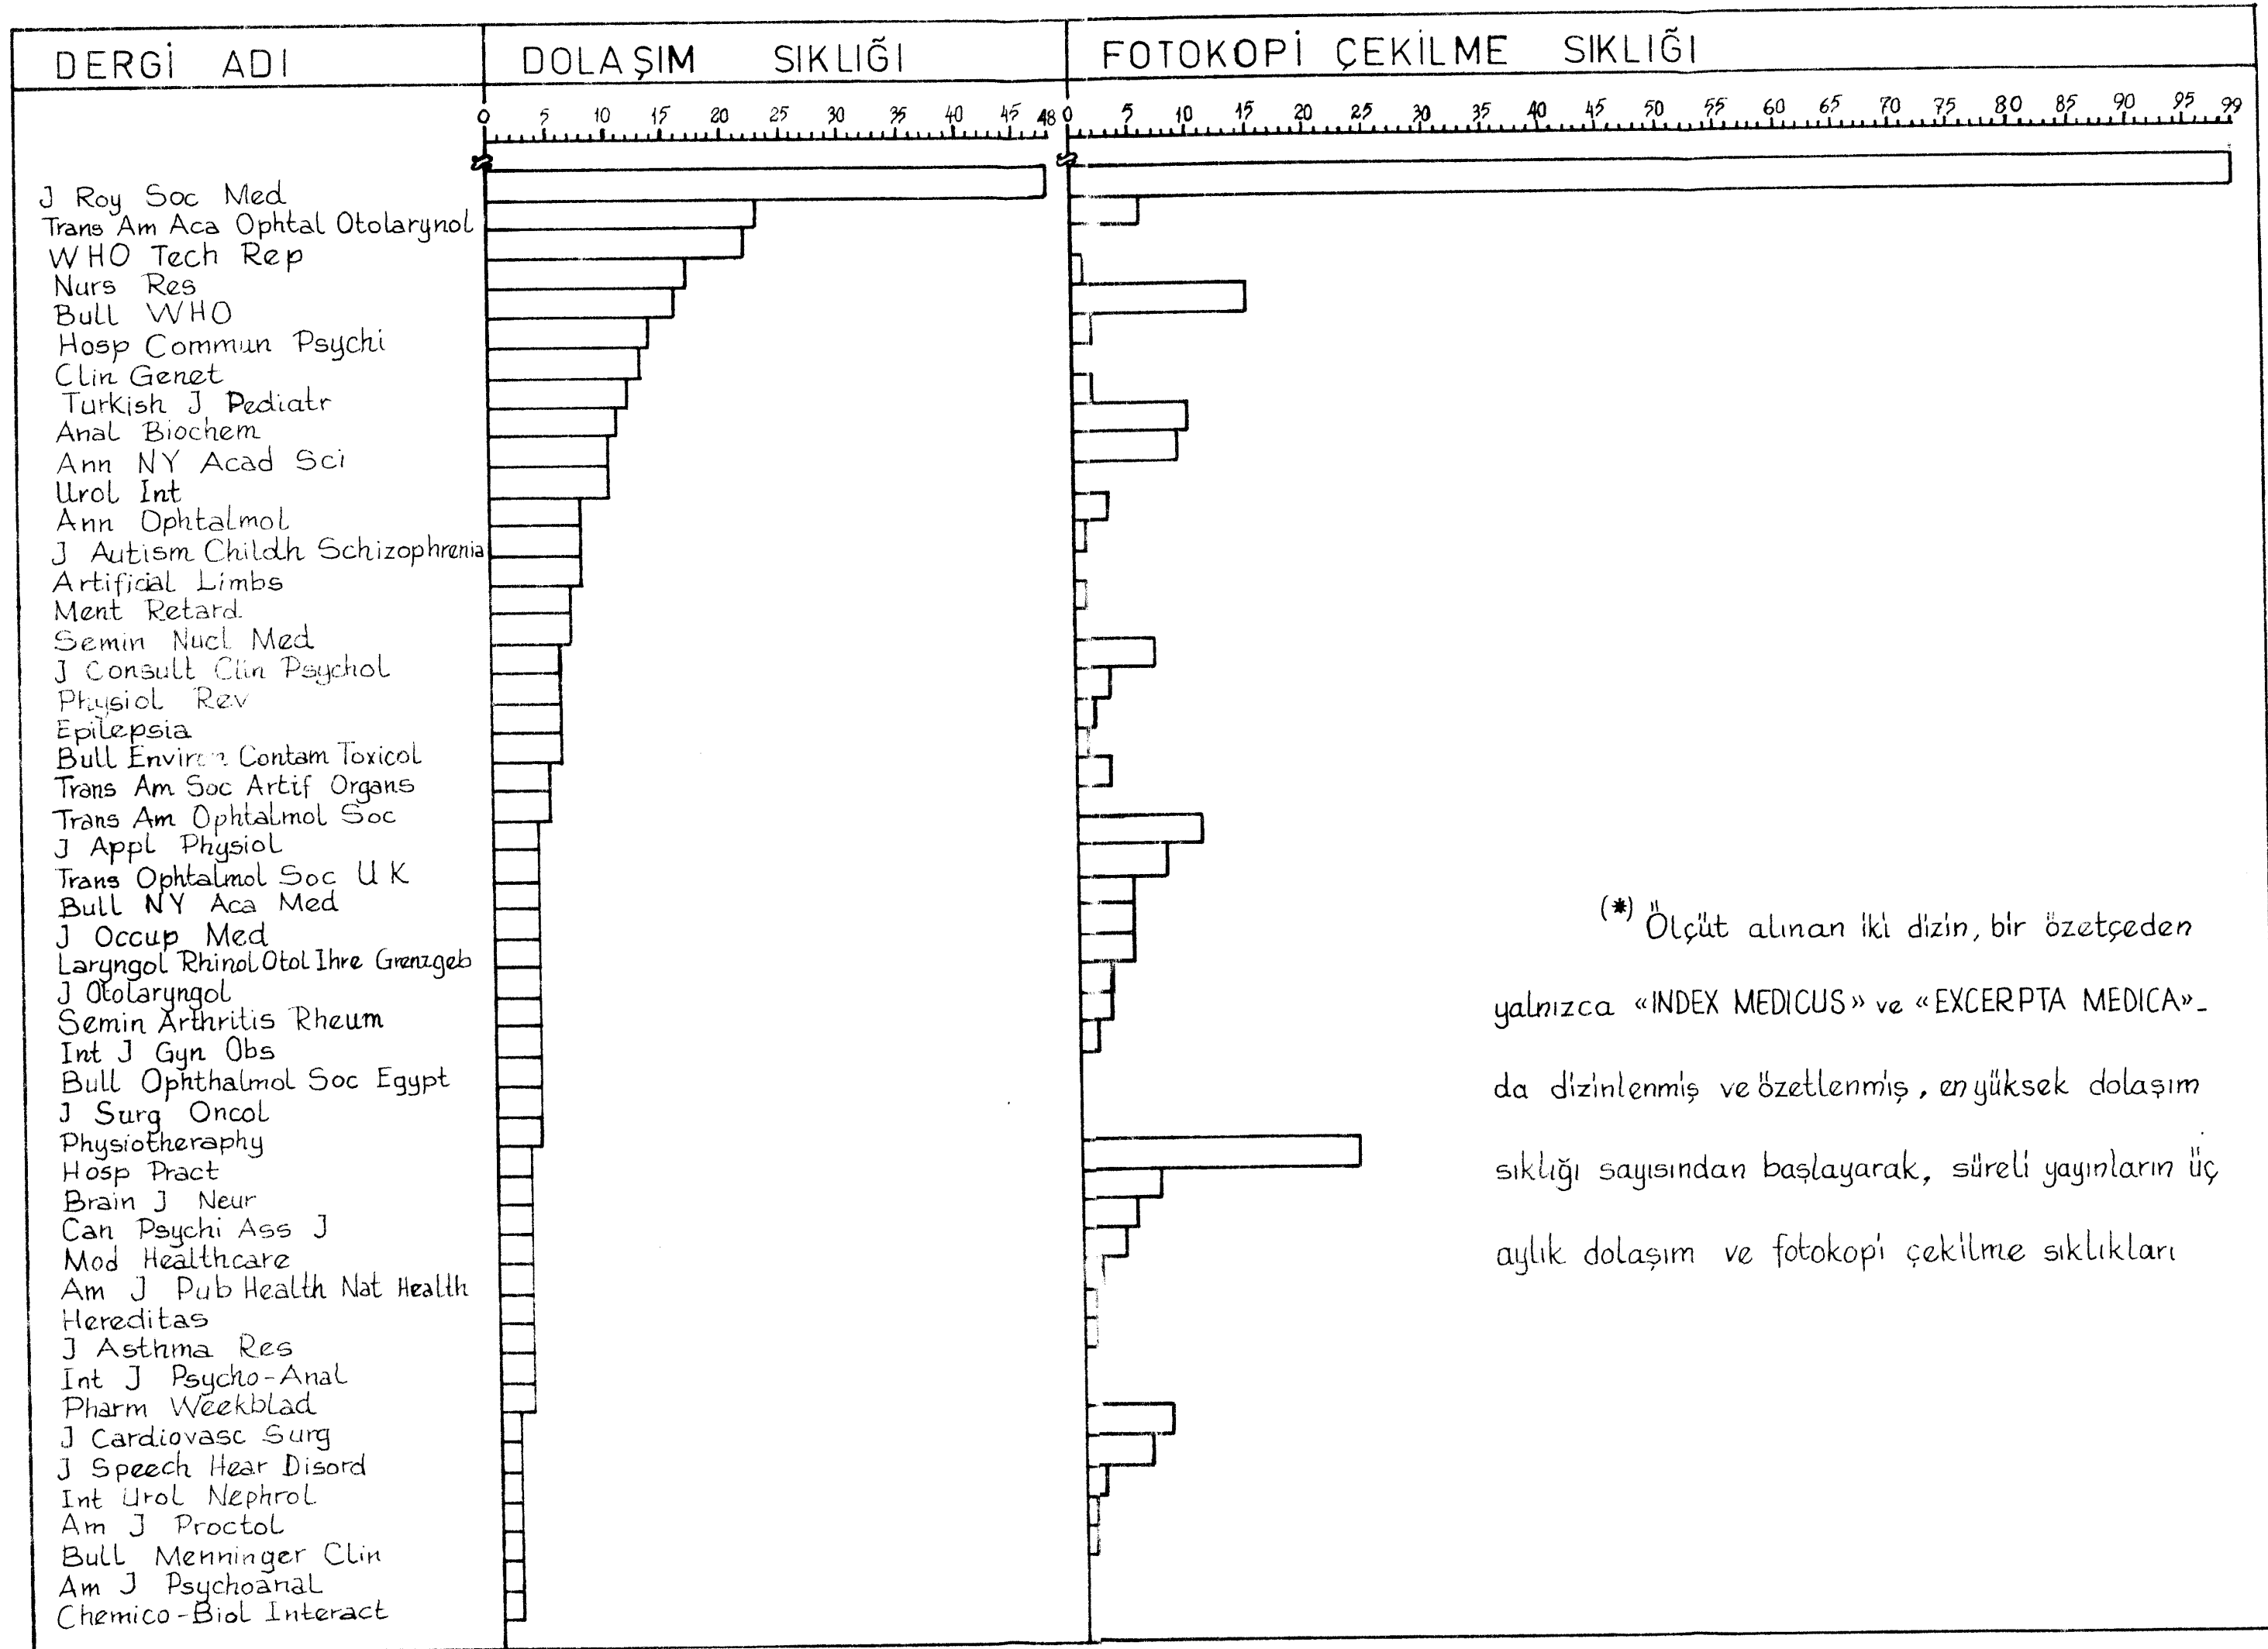 DERGİ ADI DOLAŞIM SIKLIĞI FOTOKOPİ ÇEKİLME SIKLIĞI
0 5 10 15 20 25 30 35 40 45 48 0 5 10 15 20 25 30 35 40 45 50 55 60 65 70 75 80 85 90 95 99
J Roy Soc Med
Trans Am Aca Ophtal Otolarynol
WHO Tech Rep
Nurs Res
Bull WHO
Hosp Commun Psychi
Clin Genet
Turkish J Pediatr
Anal Biochem
Ann NY Acad Sci
Urol Int
Ann Ophtalmol
J Autism Childh Schizophrenia
Artificial Limbs
Ment Retard.
Semin Nucl Med
J Consult Clin Psychol
Physiol Rev
Epilepsia
Bull Environ Contam Toxicol
Trans Am Soc Artif Organs
Trans Am Ophtalmol Soc
J Appl Physiol
Trans Ophtalmol Soc U K
Bull NY Aca Med
J Occup Med
Laryngol Rhinol Otol Ihre Grenzgeb
J Otolaryngol
Semin Arthritis Rheum
Int J Gyn Obs
Bull Ophthalmol Soc Egypt
J Surg Oncol
Physiotheraphy
Hosp Pract
Brain J Neur
Can Psychi Ass J
Mod Healthcare
Am J Pub Health Nat Health
Hereditas
J Asthma Res
Int J Psycho-Anal
Pharm Weekblad
J Cardiovasc Surg
J Speech Hear Disord
Int Urol Nephrol
Am J Proctol
Bull Menninger Clin
Am J Psychoanal
Chemico-Biol Interact
(*) Ölçüt alınan iki dizin, bir özetçeden
yalnızca «INDEX MEDICUS» ve «EXCERPTA MEDICA»-
da dizinlenmiş ve özetlenmiş, en yüksek dolaşım
sıklığı sayısından başlayarak, süreli yayınların üç
aylık dolaşım ve fotokopi çekilme sıklıkları